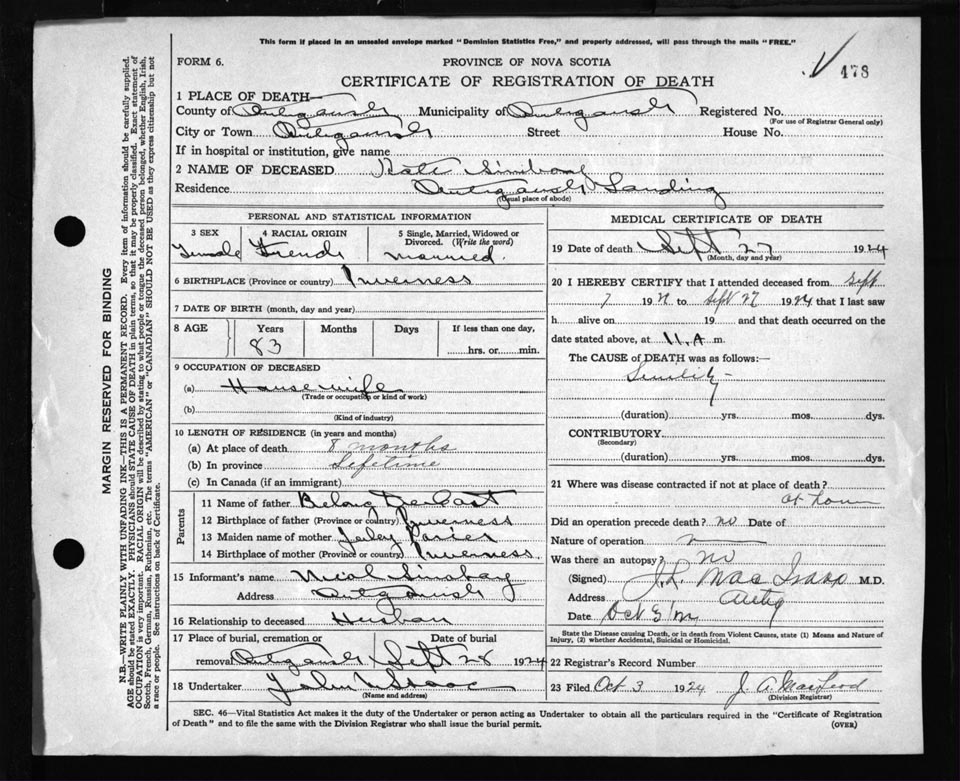 This form if placed in an unsealed envelope marked "Dominion Statistics Free," and properly addressed, will pass through the mails "FREE."
FORM 6.
PROVINCE OF NOVA SCOTIA
478
CERTIFICATE OF REGISTRATION OF DEATH
1 PLACE OF DEATH—
County of Municipality of Registered No.
(For use of Registrar General only)
City or Town Street House No.
If in hospital or institution, give name
2 NAME OF DECEASED Kate
Residence Landing
(Usual place of abode)
PERSONAL AND STATISTICAL INFORMATION
3 SEX 4 RACIAL ORIGIN 5 Single, Married, Widowed or Divorced. (Write the word)
Female French Married.
6 BIRTHPLACE (Province or country) Inverness
7 DATE OF BIRTH (month, day and year)
8 AGE Years Months Days If less than one day,
83 hrs. or min.
9 OCCUPATION OF DECEASED
(a) House wife
(Trade or occupation or kind of work)
(b)
(Kind of industry)
10 LENGTH OF RESIDENCE (in years and months)
(a) At place of death 8 months
(b) In province Lifetime
(c) In Canada (if an immigrant)
Parents
11 Name of father
12 Birthplace of father (Province or country) Inverness
13 Maiden name of mother
14 Birthplace of mother (Province or country) Inverness.
15 Informant's name
Address
16 Relationship to deceased Husban
17 Place of burial, cremation or removal Date of burial
Sept 28 1924
18 Undertaker John
(Name and address)
MEDICAL CERTIFICATE OF DEATH
19 Date of death Sept 27 1924
(Month, day and year)
20 I HEREBY CERTIFY that I attended deceased from Sept
7 19 to Sept 27 1924 that I last saw
h alive on 19 and that death occurred on
date stated above, at 11.A m.
The CAUSE of DEATH was as follows:—
Senility
(duration) yrs. mos. dys.
CONTRIBUTORY
(Secondary)
(duration) yrs. mos. dys.
21 Where was disease contracted if not at place of death?
at home
Did an operation precede death? no Date of
Nature of operation
Was there an autopsy? No
(Signed) J.L. Mac Isaac M.D.
Address Antig
Date Oct 3
State the Disease causing Death, or in death from Violent Causes, state (1) Means and Nature of Injury, (2) whether Accidental, Suicidal or Homicidal.
22 Registrar's Record Number
23 Filed Oct 3 1924 J. A.
(Division Registrar)
SEC. 46—Vital Statistics Act makes it the duty of the Undertaker or person acting as Undertaker to obtain all the particulars required in the "Certificate of Registration
of Death" and to file the same with the Division Registrar who shall issue the burial permit.
(OVER)
MARGIN RESERVED FOR BINDING
N.B.—WRITE PLAINLY WITH UNFADING INK—THIS IS A PERMANENT RECORD. Every item of information should be carefully supplied.
AGE should be stated EXACTLY. PHYSICIANS should STATE CAUSE OF DEATH in plain terms, so that it may be properly classified. Exact statement of
OCCUPATION is very important. RACIAL ORIGIN will be described by stating to what people or tongue the deceased person belonged, whether English, Irish,
Scotch, French, German, Russian, Ruthenian, etc. The terms "AMERICAN" or "CANADIAN" SHOULD NOT BE USED as they express citizenship but not
a race or people. See instructions on back of Certificate.